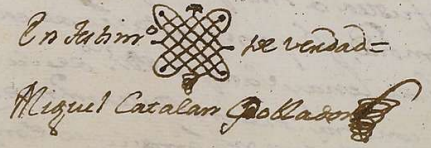 En testimº de verdad=
Miguel Catalan Pollador